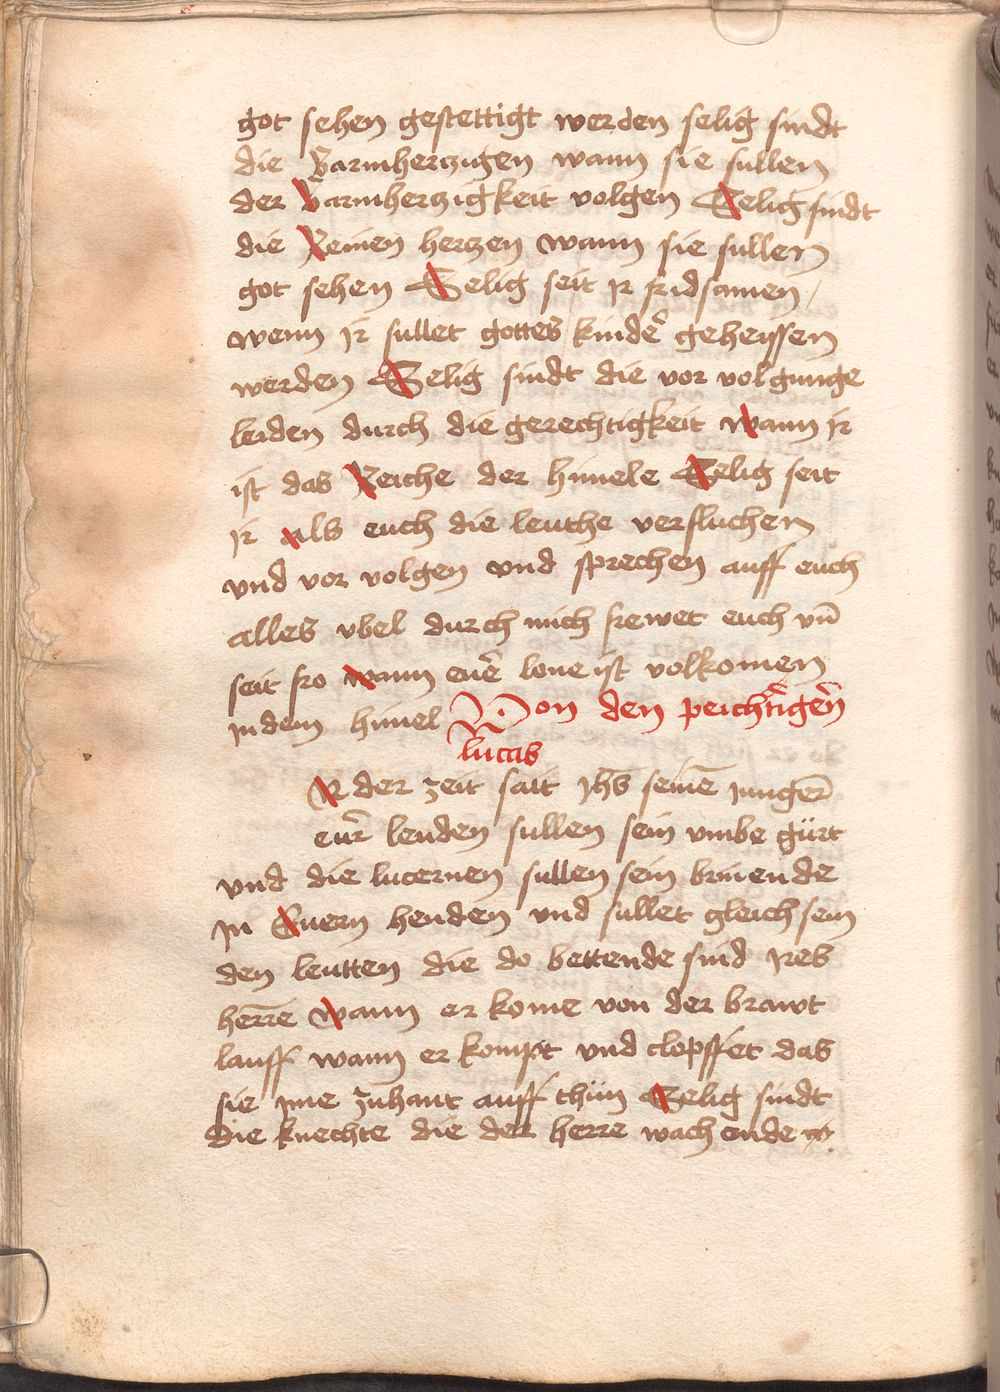 got sehen gestettigt werden selig sindt
die Barmherczigen wann sie sullen
der Barmherczigkeit volgen Selig sindt
die Reinen herczen wann sie sullen
got sehen Selig seit ir fridsamen /
wenn ir sullet gottes kinder̄ geheyssen
werden Selig sindt die vor volgunge
leiden durch die gerechtigkeit wann ir
ist das Reiche der himele Selig seit
ir als euch die leuthe verfluchen
vnd vor volgen vnd sprechen auff euch
alles vbel durch mich frewet euch vn̄
seit fro wann eur̄e lone ist volkomen
in dem himel Von den peichtīgern̄
lucas
der zeit sait ihs̄ seinē iunger̄
eur̄ lenden sullen sein vmbe gürt
vnd die lucernen sullen sein brinende
in Euern henden vnd sullet gleich sein
den leutten die do bettende sind ires
herr̄e wann er kome von der brawt
lauff wann er kompt vnd clopffet das
sie ime zuhant auff thün Selig sindt
die knechte die der herre wachende